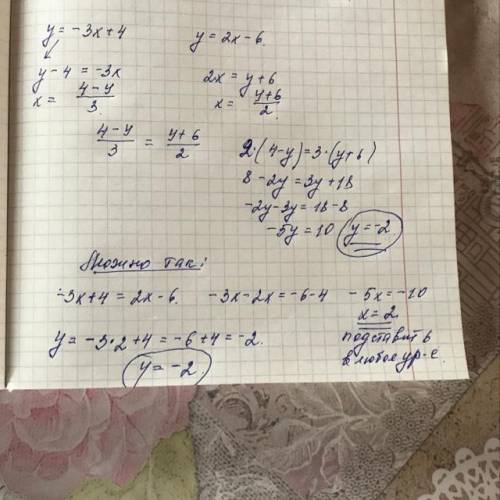 y = -3x+4
y = 2x-6.
y-4 = -3x
x = (4-y)/3
2x = y+6
x = (y+6)/2
(4-y)/3 = (y+6)/2
2·(4-y)=3·(y+6)
8-2y = 3y+18
-2y-3y = 18-8
-5y = 10 y=-2
Можно так:
-3x+4 = 2x-6. -3x-2x = -6-4 -5x = -10
x = 2
y = -3·2+4 = -6+4 = -2.
подставить
в любое ур-е.
y = -2.